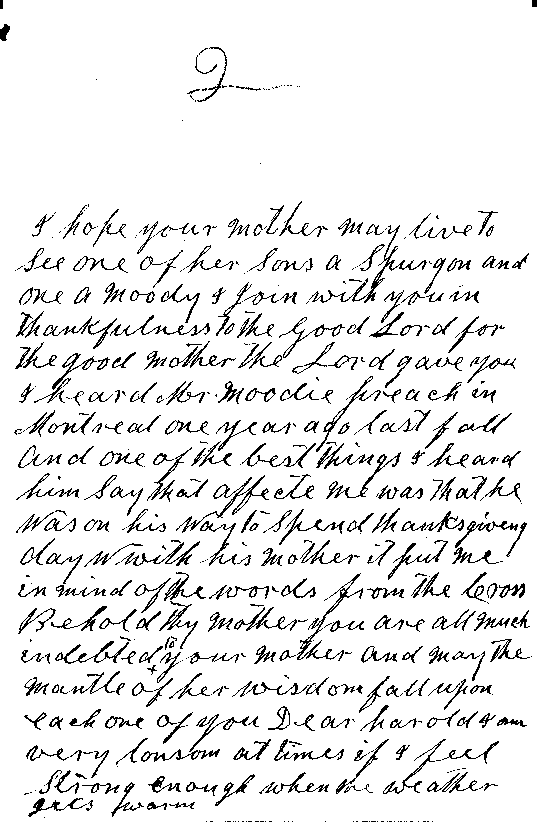 2
I hope your mother may live to
See one of her Sons a Spurgon and
one a Moody I Join with you in
thankfulness to the Good Lord for
the good mother the Lord gave you
I heard Mr. Moodie preach in
Montreal one year ago last fall
and one of the best things I heard
him Say that affecte me was that he
was on his way to Spend thanksgiveng
day w with his mother it put me
in mind of the words from the Cross
Behold thy mother you are all much
indebted to your mother and may the
mantle of her wisdom fall upon
each one of you Dear harold I am
very lonsom at times if I feel
Strong enough when the weather
gets warm